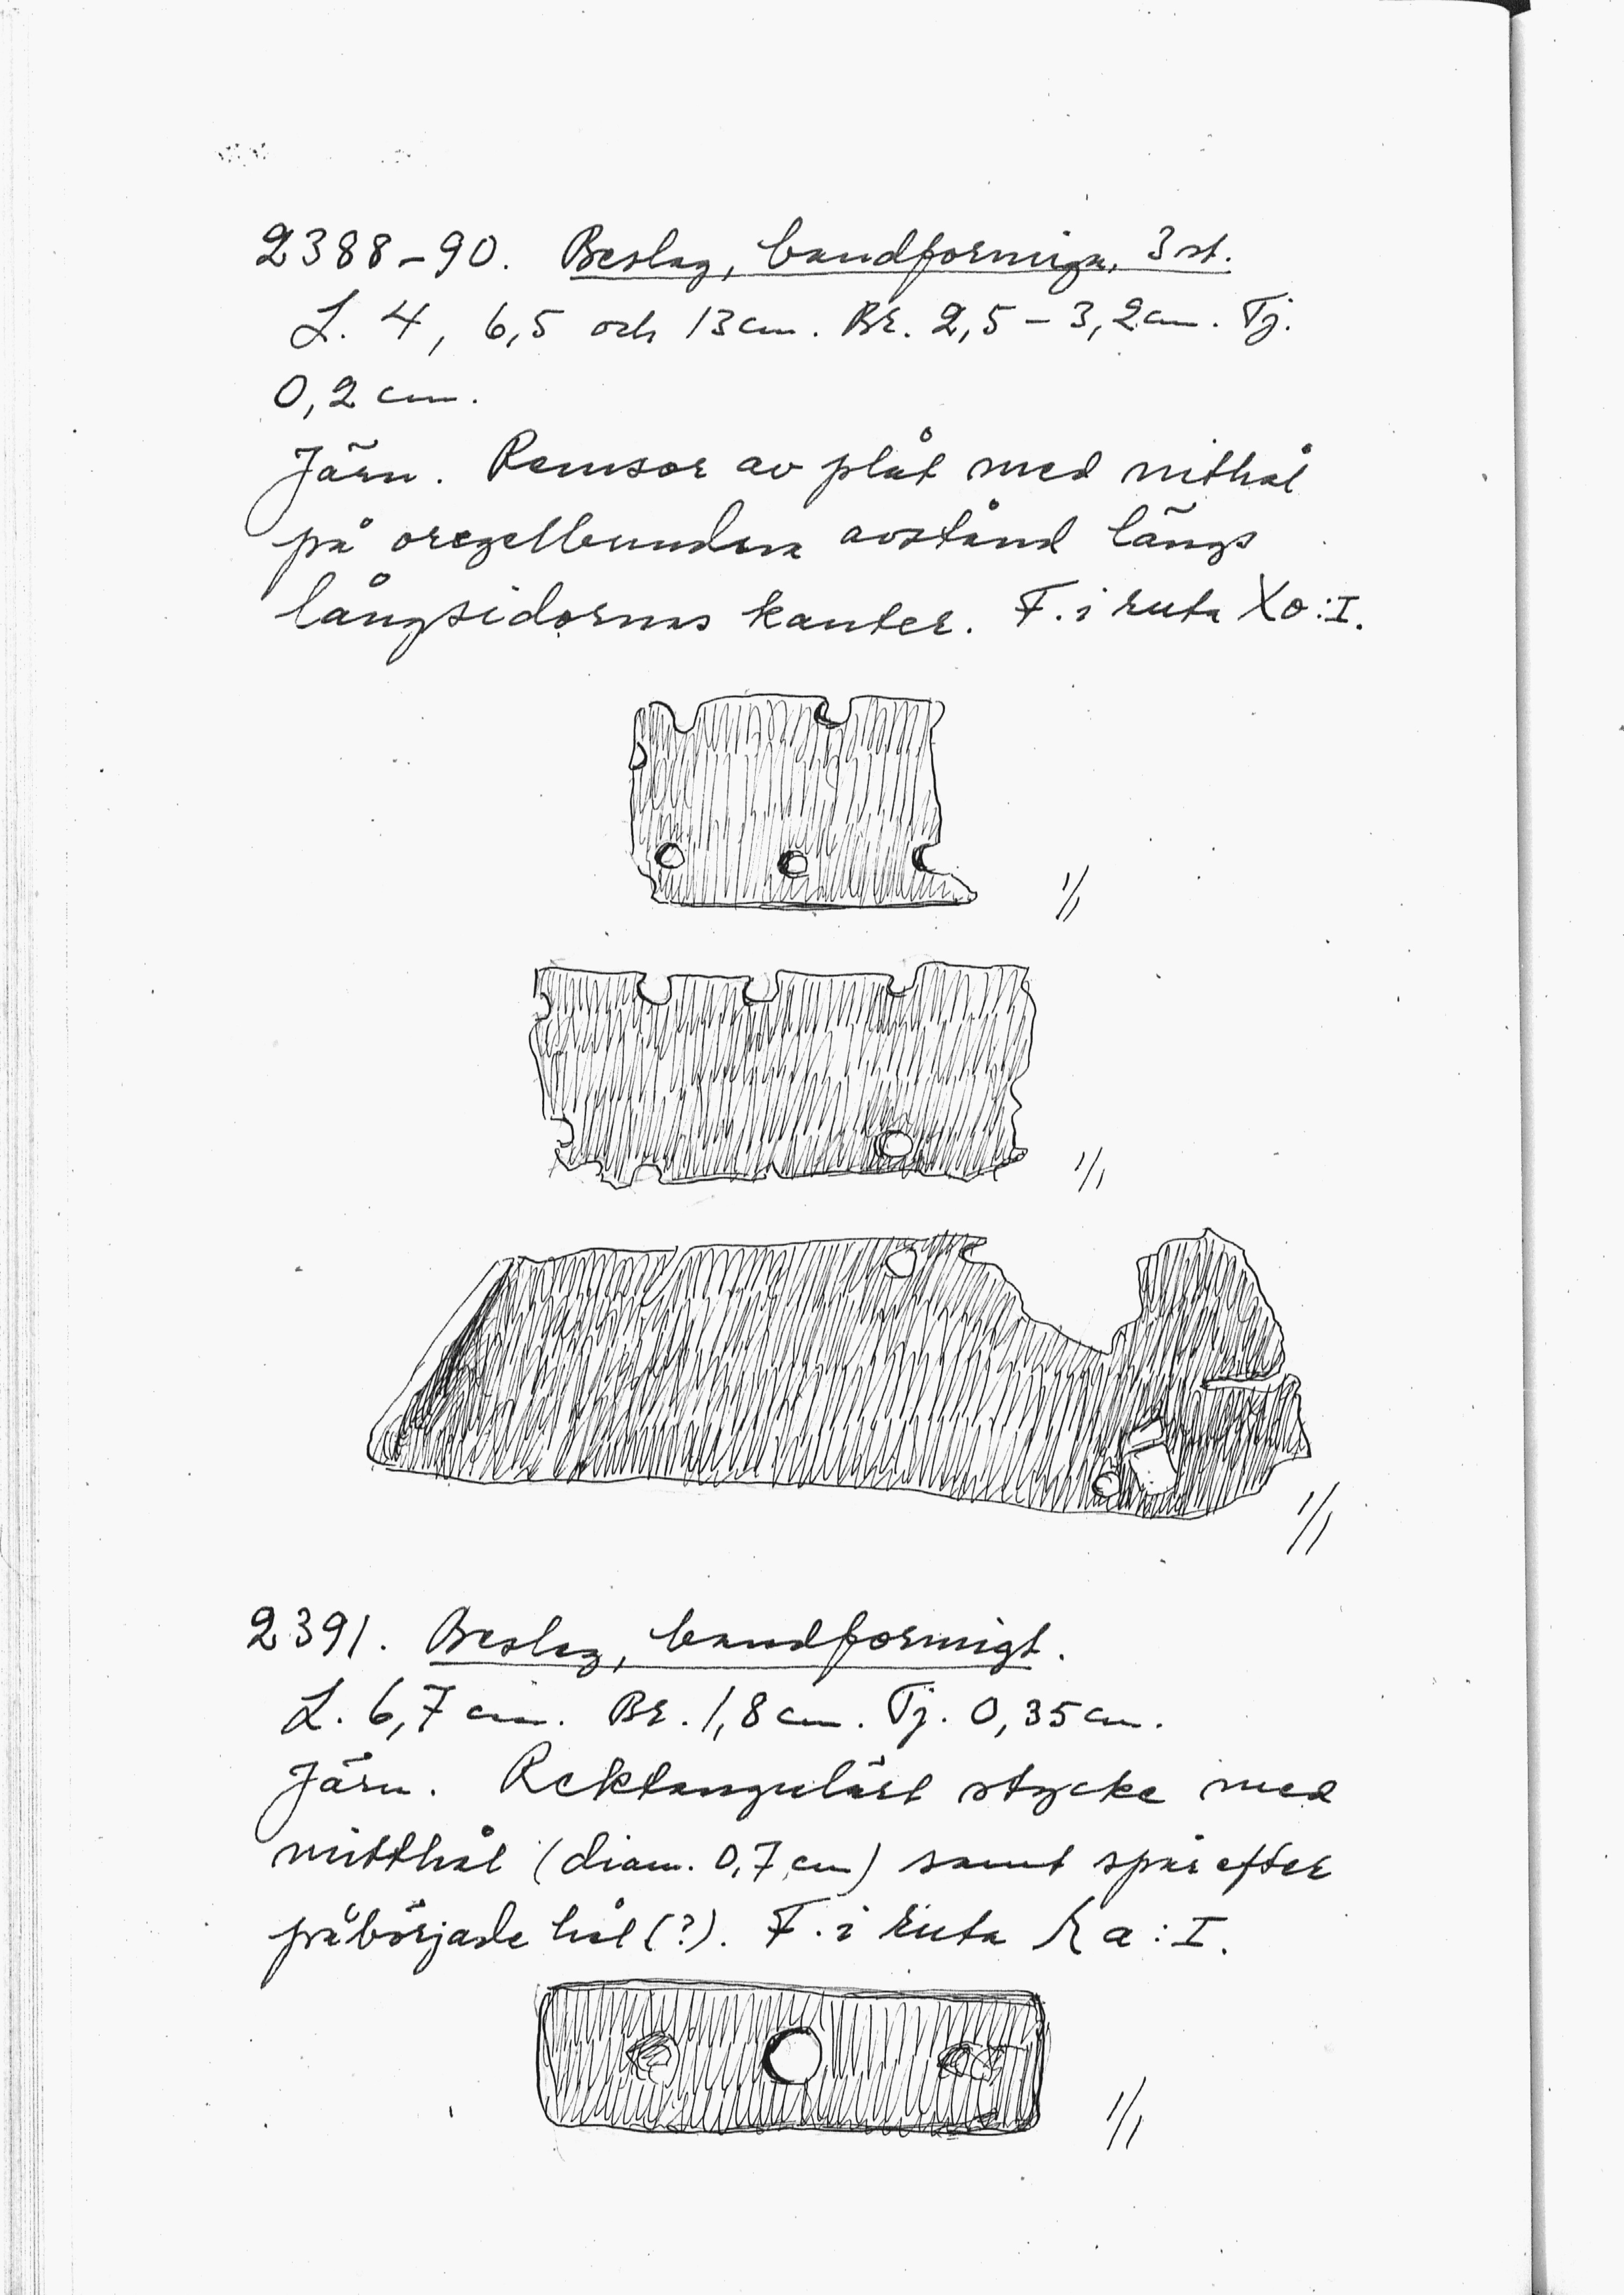 2388-90. Beslag, bandformiga, 3 st.
L. 4, 6,5 och 13 cm. Br. 2,5 - 3,2 cm. Tj.
0,2 cm.
Järn. Remsor av plåt med nithål
på oregelbundna avstånd längs
långsidornas kanter. F. i ruta Xo:I.
1/1
1/1
1/1
2391. Beslag, bandformigt.
L. 6,7 cm. Br. 1,8 cm. Tj. 0,35 cm.
Järn. Rektangulärt stycke med
mitthål (diam. 0,7 cm) samt spår efter
påbörjade hål (?). F. i ruta a:I.
1/1